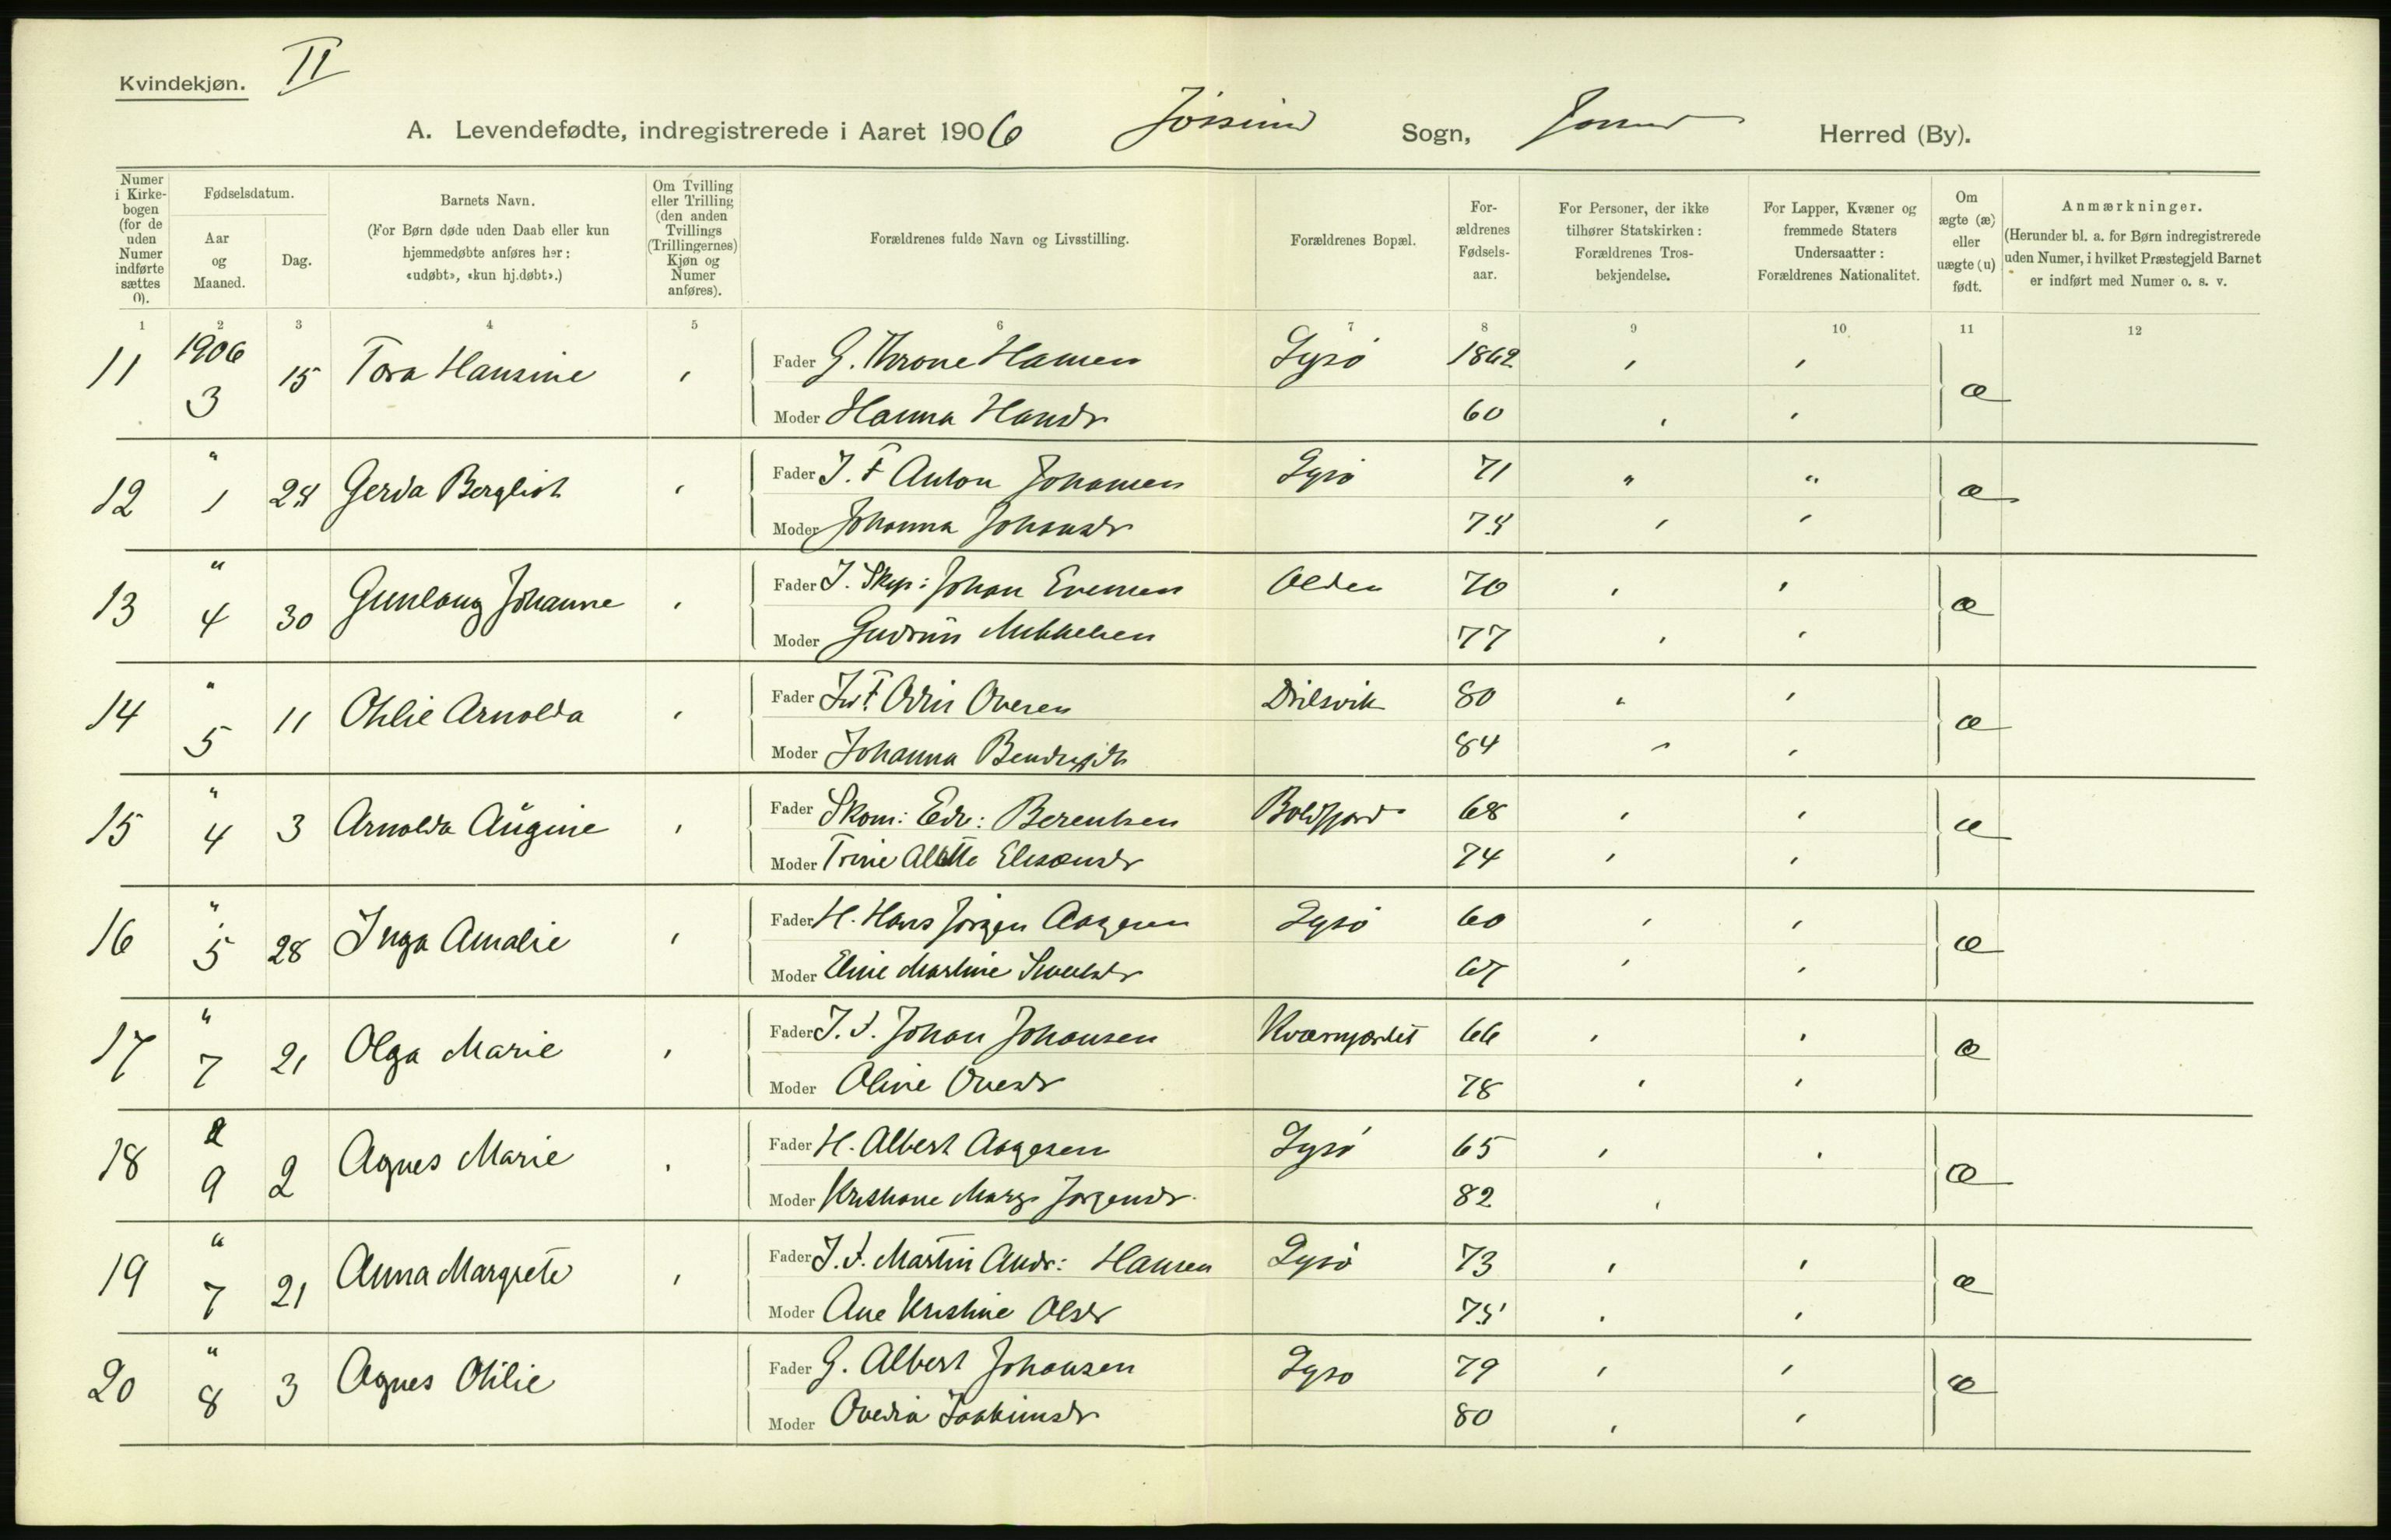 Kvindekjøn. II
A. Levendefødte, indregistrerede i Aaret 1906 Jøssund Sogn, Herred (By).
Numer i Kirkebogen (for de uden Numer indførte sættes 0).
Fødselsdatum.
Aar og Maaned.
Dag.
Barnets Navn.
(For Børn døde uden Daab eller kun hjemmedøbte anføres her: «udøbt», «kun hj.døbt».)
Om Tvilling eller Trilling (den anden Tvillings (Trillingernes) Kjøn og Numer anføres).
Forældrenes fulde Navn og Livsstilling.
Forældrenes Bopæl.
Forældrenes Fødselsaar.
For Personer, der ikke tilhører Statskirken: Forældrenes Trosbekjendelse.
For Lapper, Kvæner og fremmede Staters Undersaatter: Forældrenes Nationalitet.
Om ægte (æ) eller uægte (u) født.
Anmærkninger.
(Herunder bl. a. for Børn indregistrerede uden Numer, i hvilket Præstegjeld Barnet er indført med Numer o. s. v.
1 2 3 4 5 6 7 8 9 10 11 12
11 1906 3 15 Tora Hansine Fader G. Throne Hansen Lysø 1862 æ
Moder Hanna Hansdr 60
12 " 1 28 Gerda Bergliot Fader J. F Anton Johansen Lysø 71 " " æ
Moder Johanna Johansdr 75
13 " 4 30 Gunlaug Johanne Fader J. Skip: Johan Evensen Olden 70 æ
Moder Gudrun Mikkelsen 77
14 " 5 11 Othlie Arnolda Fader Odin Ovesen Drilsvik 80 æ
Moder Johanna 84
15 " 4 3 Arnolda Augine Fader Skom: Edv: Berentsen 68 æ
Moder Trine Alette 74
16 " 5 28 Inga Amalie Fader H. Hans Jørgen Aagesen Lysø 60 æ
Moder Eline Martine 67
17 " 7 21 Olga Marie Fader J. F. Johan Johansen 66 æ
Moder Oline Ovesdr 78
18 9 2 Agnes Marie Fader H. Albert Aagesen Lysø 65 æ
Moder Kristiane Marg. Jørgensdr 82
19 " 7 21 Anna Margrete Fader J. F. Martin Andr: Hansen Lysø 73 æ
Moder Ane Kristine Olsdr 75
20 " 8 3 Agnes Otilie Fader G. Albert Johansen Lysø 79 æ
Moder Ovedia Joakimsdr 80